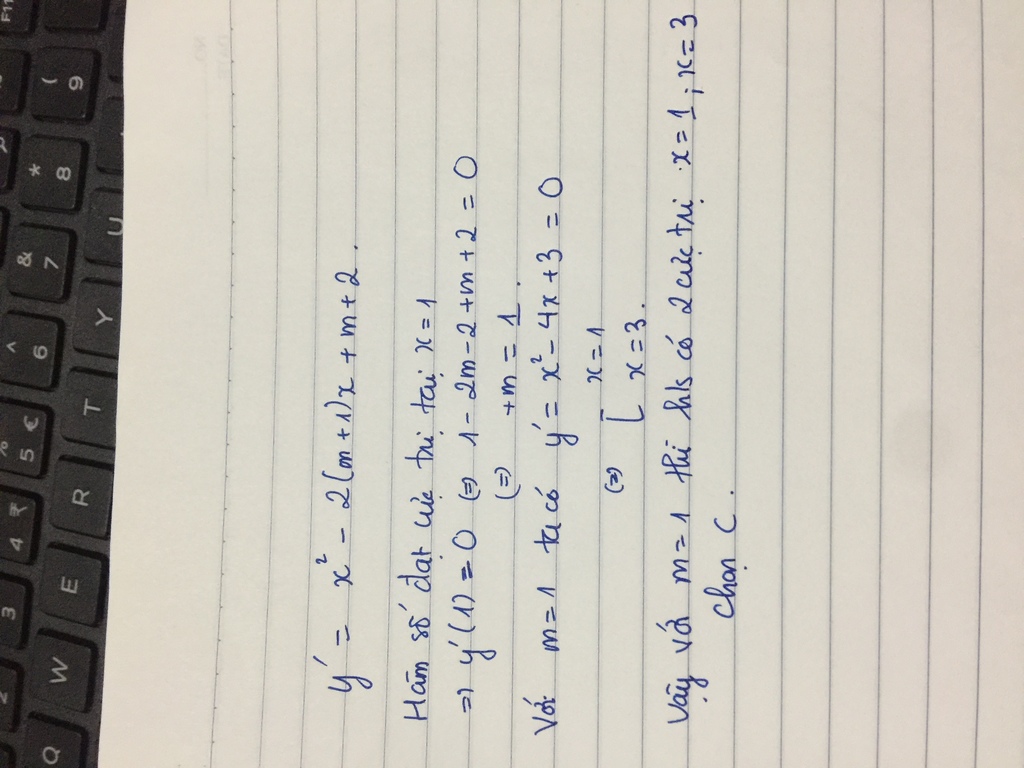 y' = x² - 2(m+1)x + m + 2.
Hàm số đạt cực trị tại x = 1
=) y'(1) = 0 (=) 1 - 2m - 2 + m + 2 = 0
(=) +m = 1.
Với m = 1 ta có y' = x² - 4x + 3 = 0
(=) [ x = 1
x = 3.
Vậy với m = 1 thì h/s có 2 cực trị x = 1 ; x = 3
chọn C.
F11
( 9
* 8
& 7
^ 6
% 5 €
4 ₹
3
2
U
Y
T
R
E
W
Q